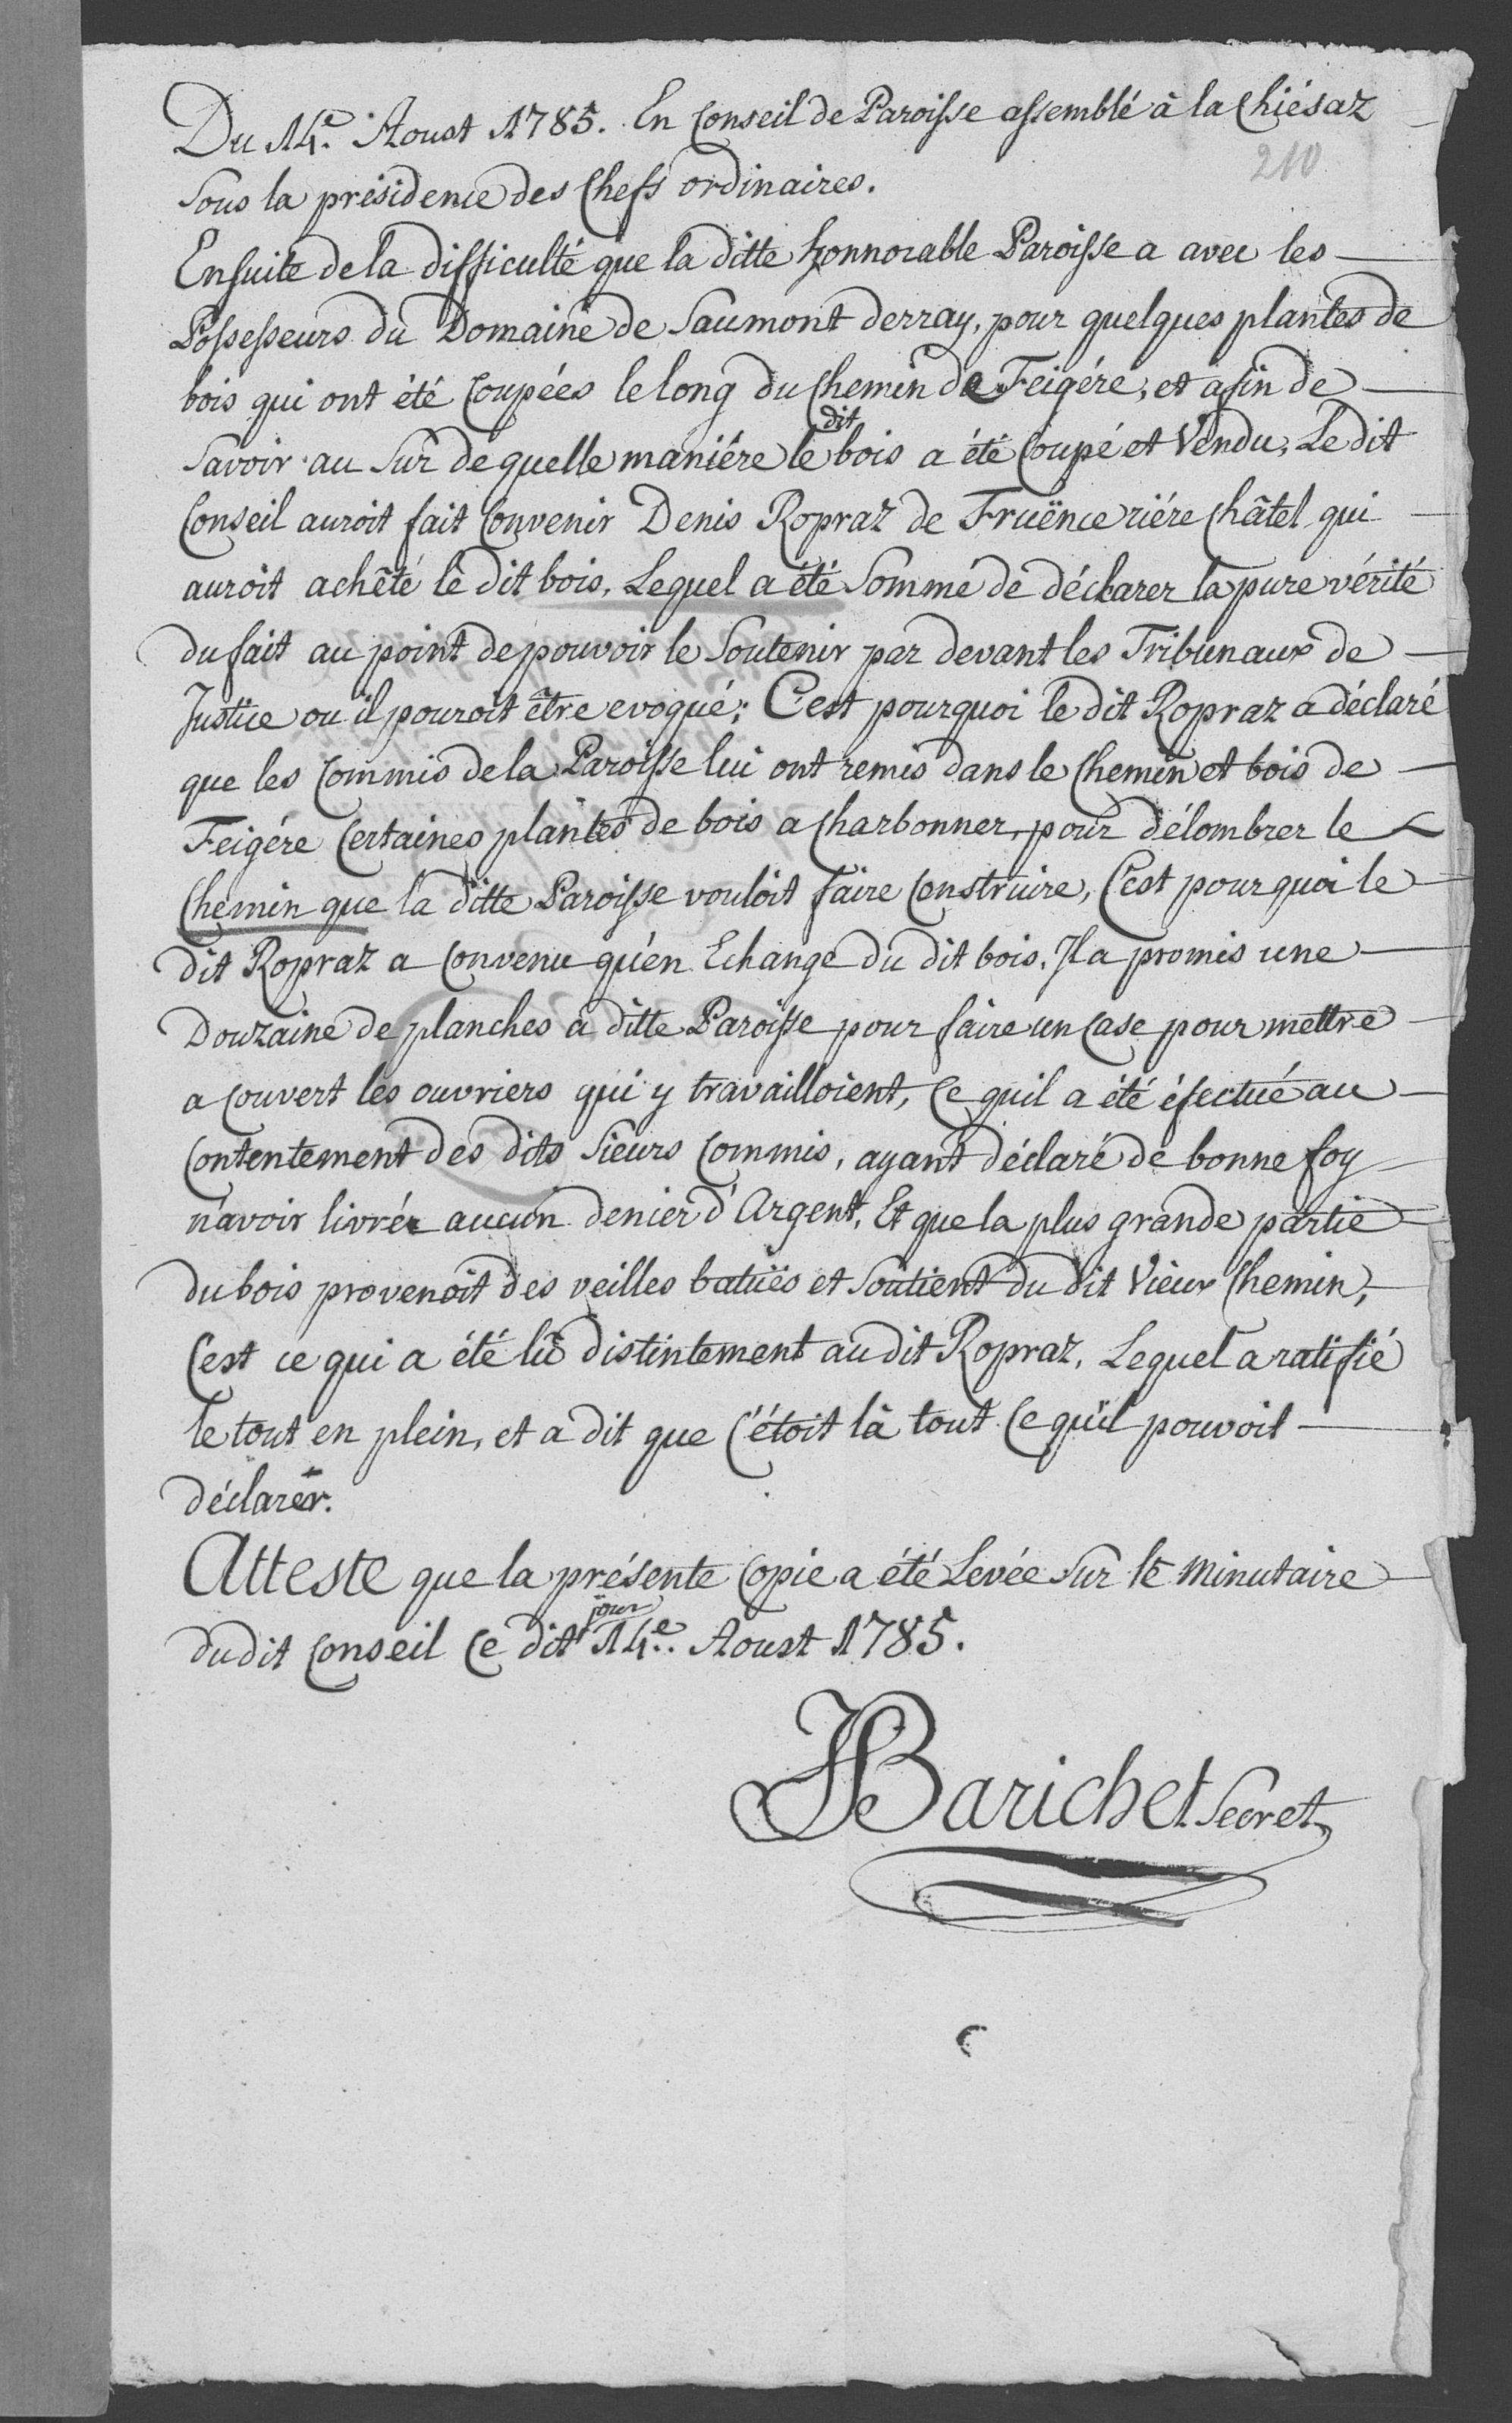 Du 14.e Aoust 1785. En Conseil de Paroisse assemblé à la Chiésaz
210
Sous la présidence des Chefs ordinaires.
Ensuite de la difficulté que la ditte honnorable Paroisse a avec les
Possesseurs du Domaine de Saumont derray, pour quelques plantes de
bois qui ont été Coupées le long du Chemin de Feigére, et afin de
dit
Savoir au Sur de quelle maniére le bois a été Coupé et Vendu, Le dit
Conseil auroit fait Convenir Denis Ropraz de Fruënce riére Châtel qui
auroit achêté le dit bois, Lequel a été Sommé de déclarer la pure vérité
du fait au point de pouvoir le Soutenir par devant les Tribunaux de
Justice ou il pouroit être evoqué; C'est pourquoi le dit Ropraz a déclaré
que les Commis de la Paroisse lui ont remis dans le Chemin et bois de
Feigére Certaines plantes de bois a Charbonner, pour délombrer le
Chemin que la ditte Paroisse vouloit faire Construire, C'est pourquoi le
dit Ropraz a Convenu qu'en Echange du dit bois, Il a promis une
Douzaine de planches a ditte Paroisse pour faire un Case pour mettre
a Couvert les ouvriers qui y travailloient, Ce quil a été éfectué au
Contentement des dits Sieurs Commis, ayant déclaré de bonne foy
n'avoir livrér aucun denier d'Argent, Et que la plus grande partie
du bois provenoit des veilles batuës et Soutient du dit Vieux Chemin,
C'est ce qui a été lû distintement au dit Ropraz, Lequel a ratifié
le tout en plein, et a dit que C'étoit là tout Ce qu'il pouvoit
déclarer.
Atteste que la présente Copie a été Levée Sur le Minutaire
jour
du dit Conseil Ce dit 14.e Aoust 1785.
JBarichet Secret